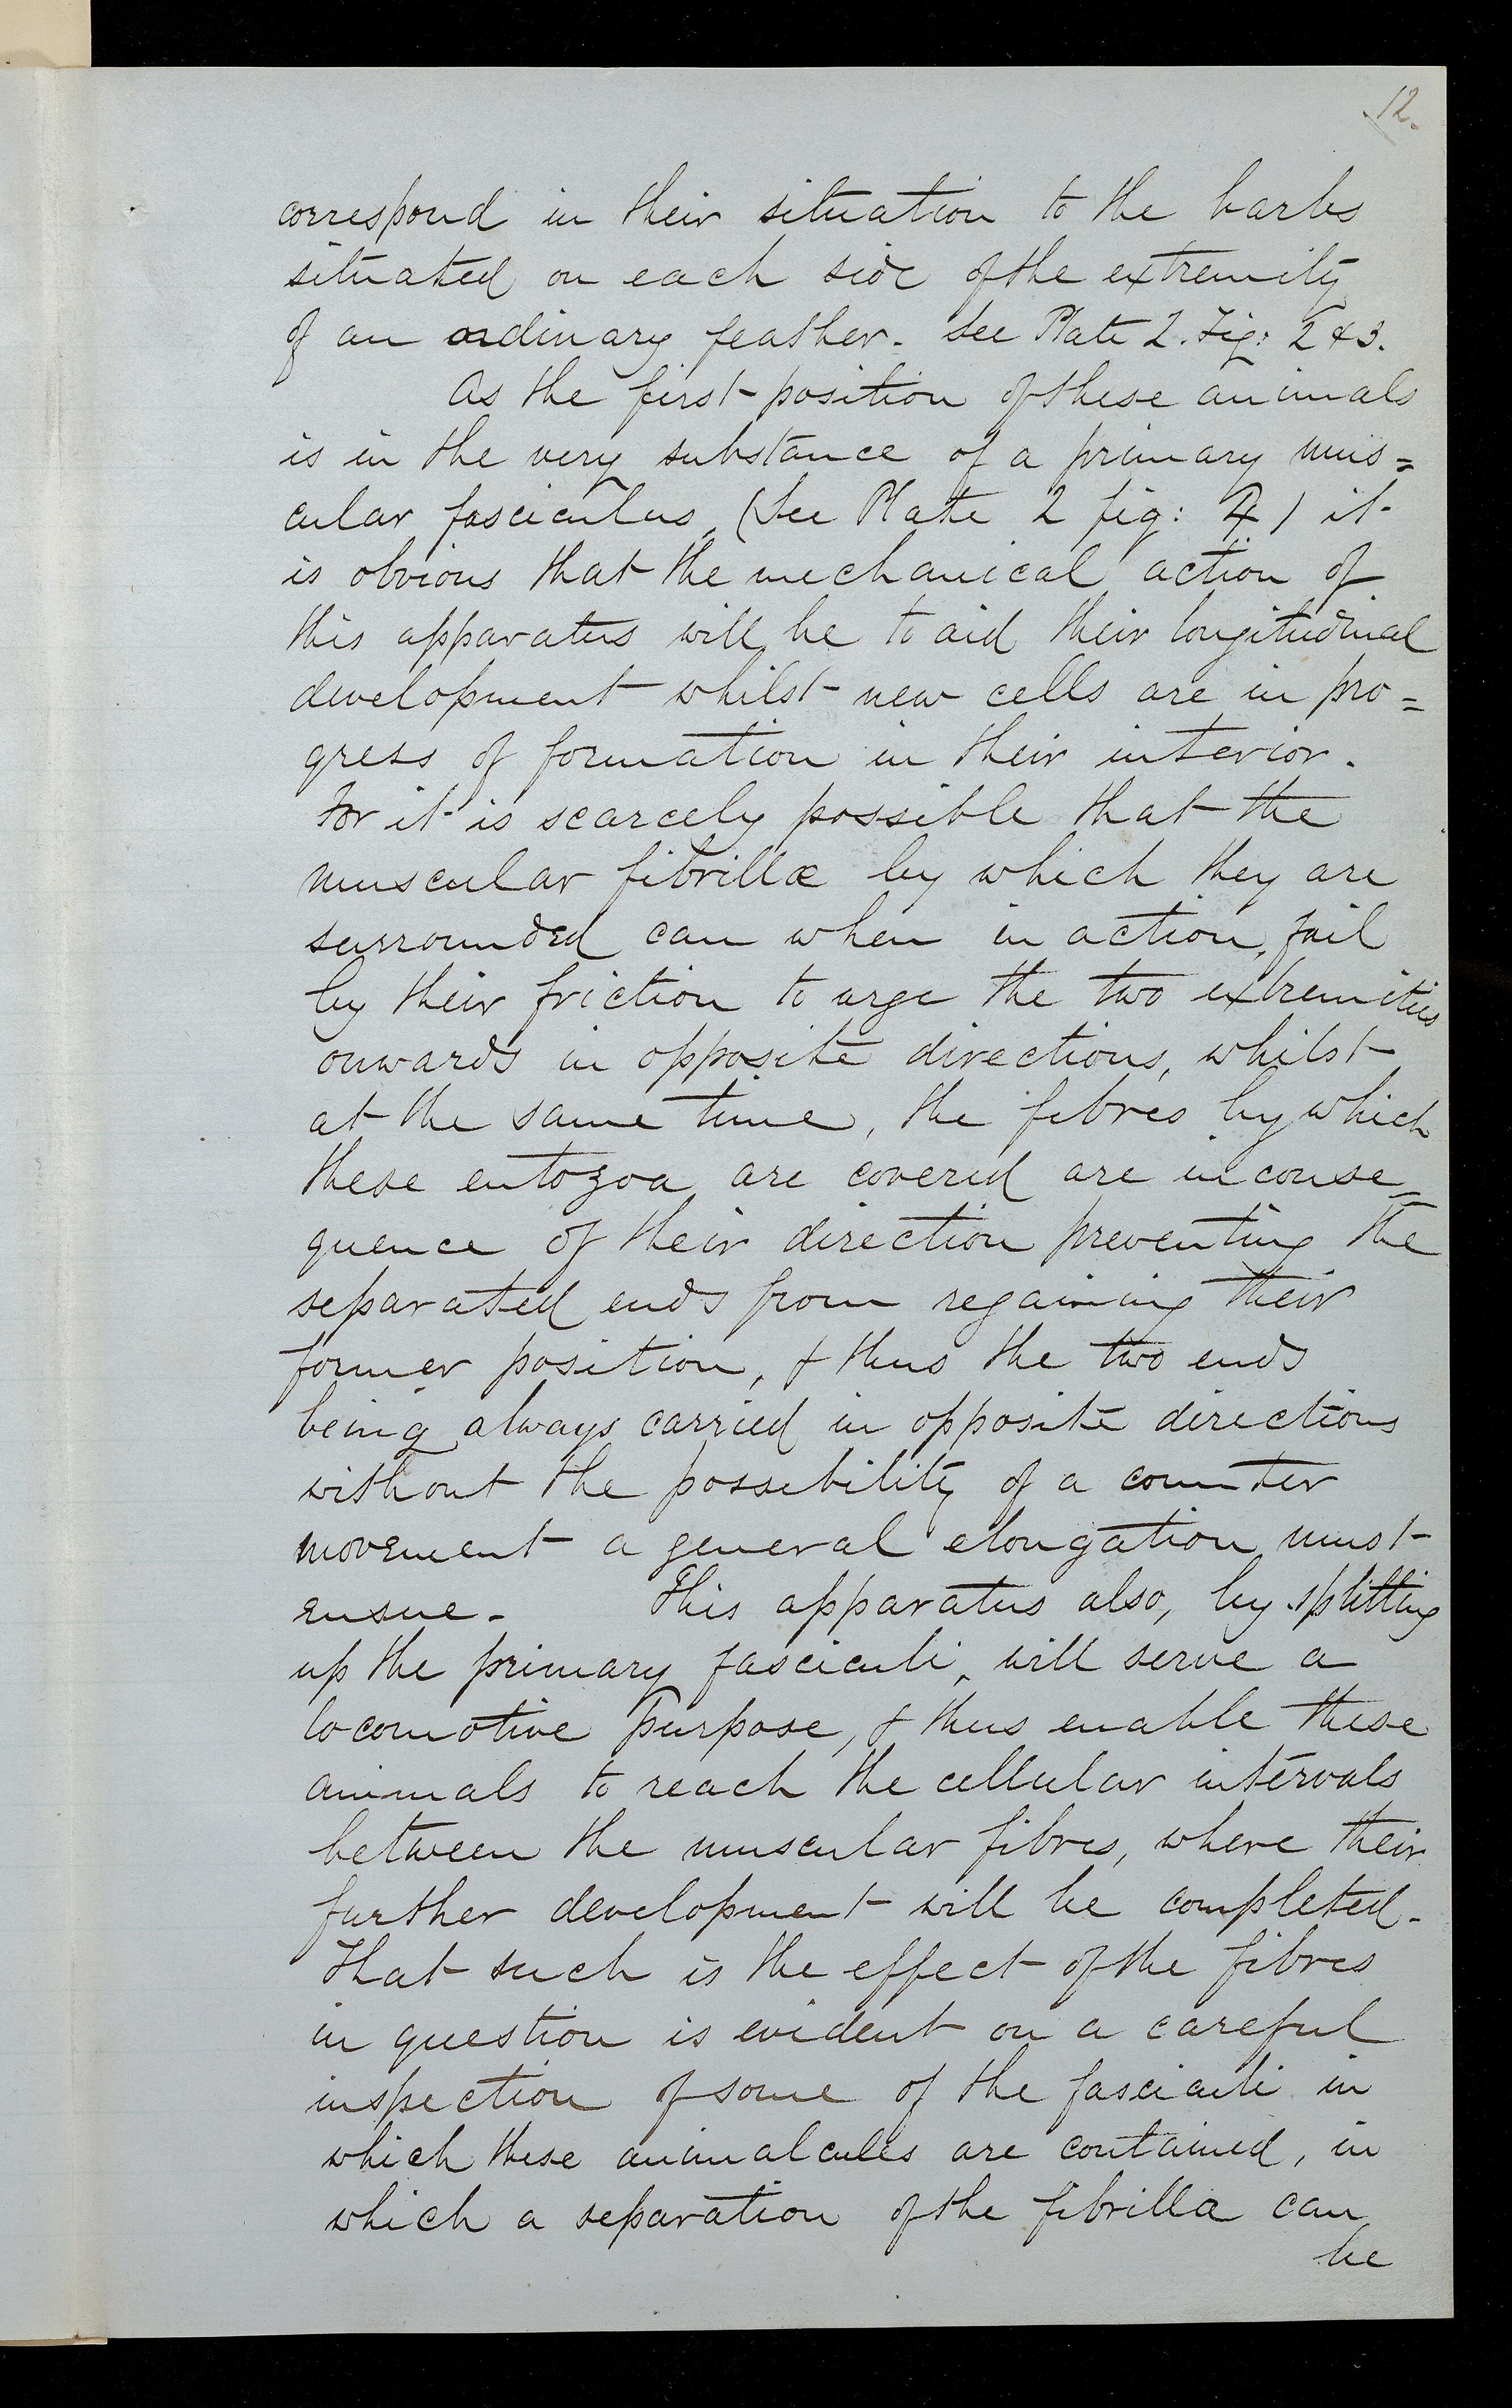 12.
correspond in their situation to the barbs
situated on each side of the extremity
of an ordinary feather. See Plate 2. Fig: 2 & 3.
As the first position of these animals
is in the very substance of a primary mus=
cular fasciculus, (See Plate 2 fig: 4) it
is obvious that the mechanical action of
this apparatus will be to aid their longitudinal
development whilst new cells are in pro=
gress of formation in their interior.
For it is scarcely possible that the
muscular fibrillæ by which they are
surrounded can when in action, fail
by their friction to urge the two extremities
onwards in opposite directions, whilst
at the same time, the fibres by which
these entozoa are covered are in conse=
quence of their direction preventing the
separated ends from regaining their
former position, & thus the two ends
being always carried in opposite directions
without the possibility of a counter
movement a general elongation must
ensue. This apparatus also, by splitting
up the primary fasciculi, will serve a
locomotive purpose, & thus enable these
animals to reach the cellular intervals
between the muscular fibres, where their
further development will be completed.
That such is the effect of the fibres
in question is evident on a careful
inspection of some of the fasciculi in
which these animalcules are contained, in
which a separation of the fibrilla can
be